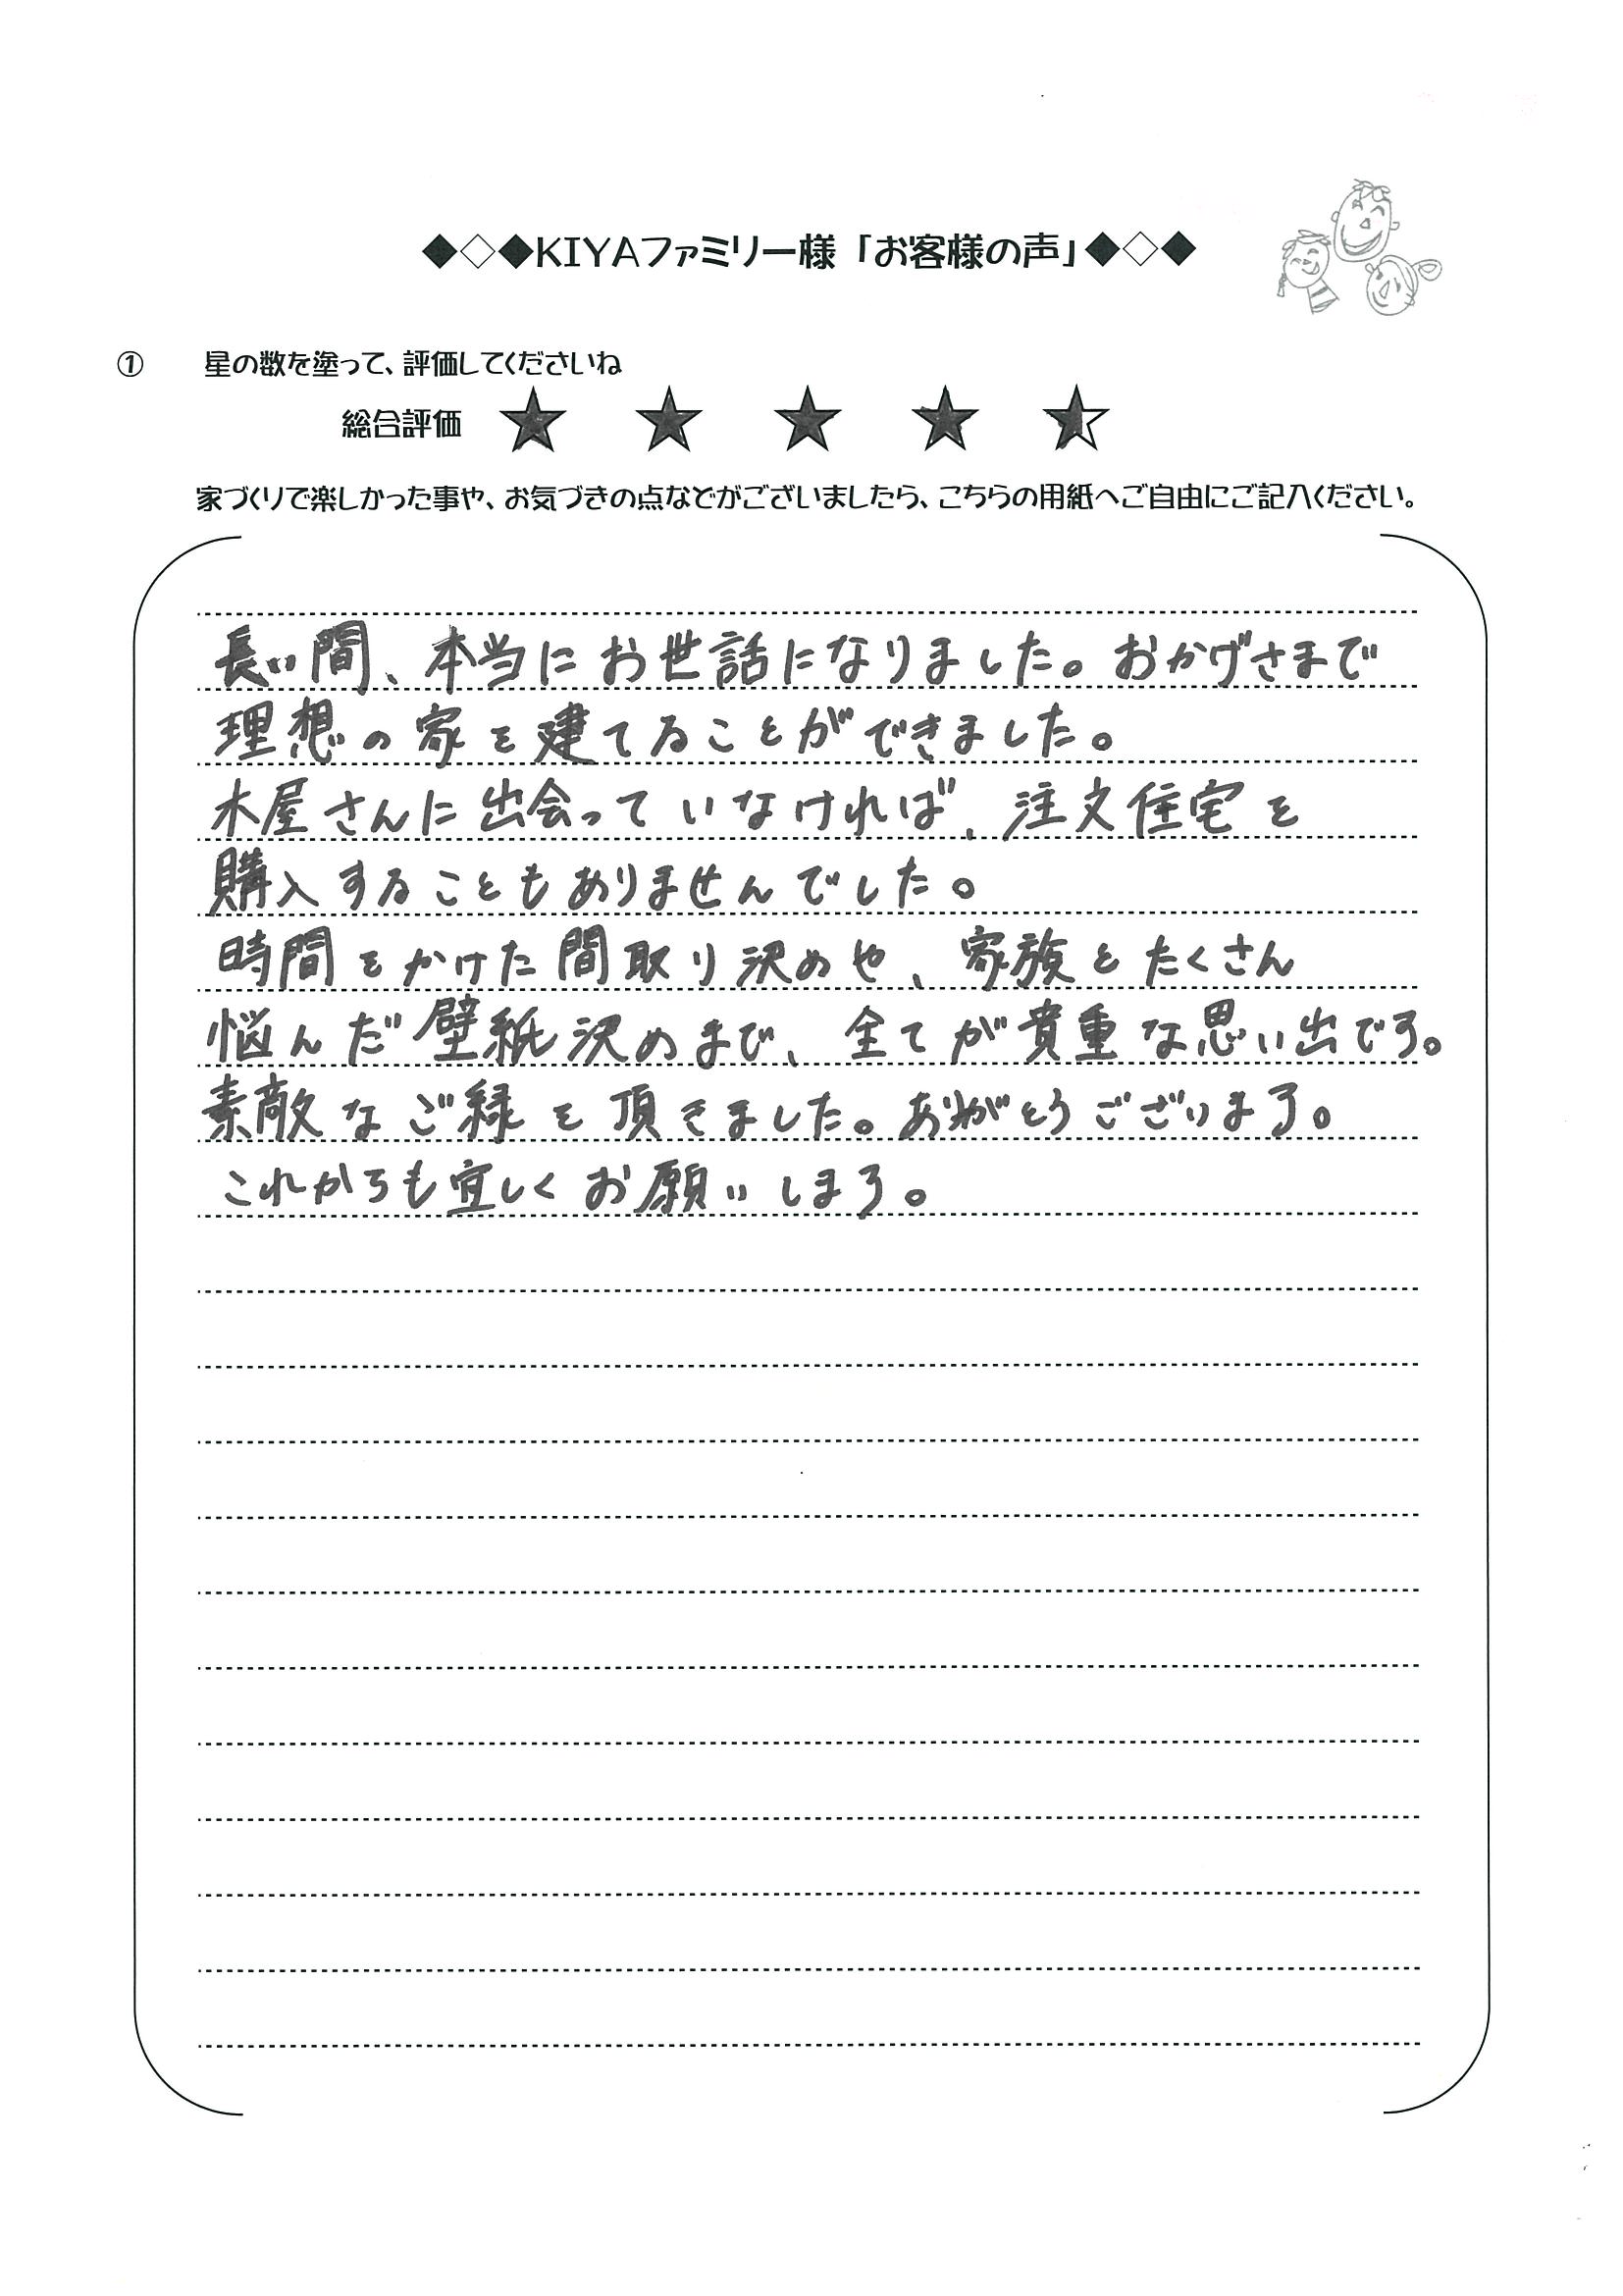 ◆◇◆KIYAファミリー様「お客様の声」◆◇◆
① 星の数を塗って、評価してくださいね
総合評価 ★ ★ ★ ★ ★
家づくりで楽しかった事や、お気づきの点などがございましたら、こちらの用紙へご自由にご記入ください。
長い間、本当にお世話になりました。おかげさまで
理想の家を建てることができました。
木屋さんに出会っていなければ、注文住宅を
購入することもありませんでした。
時間をかけた間取り決めや、家族とたくさん
悩んだ壁紙決めまで、全てが貴重な思い出です。
素敵なご縁を頂きました。ありがとうございます。
これからも宜しくお願いします。